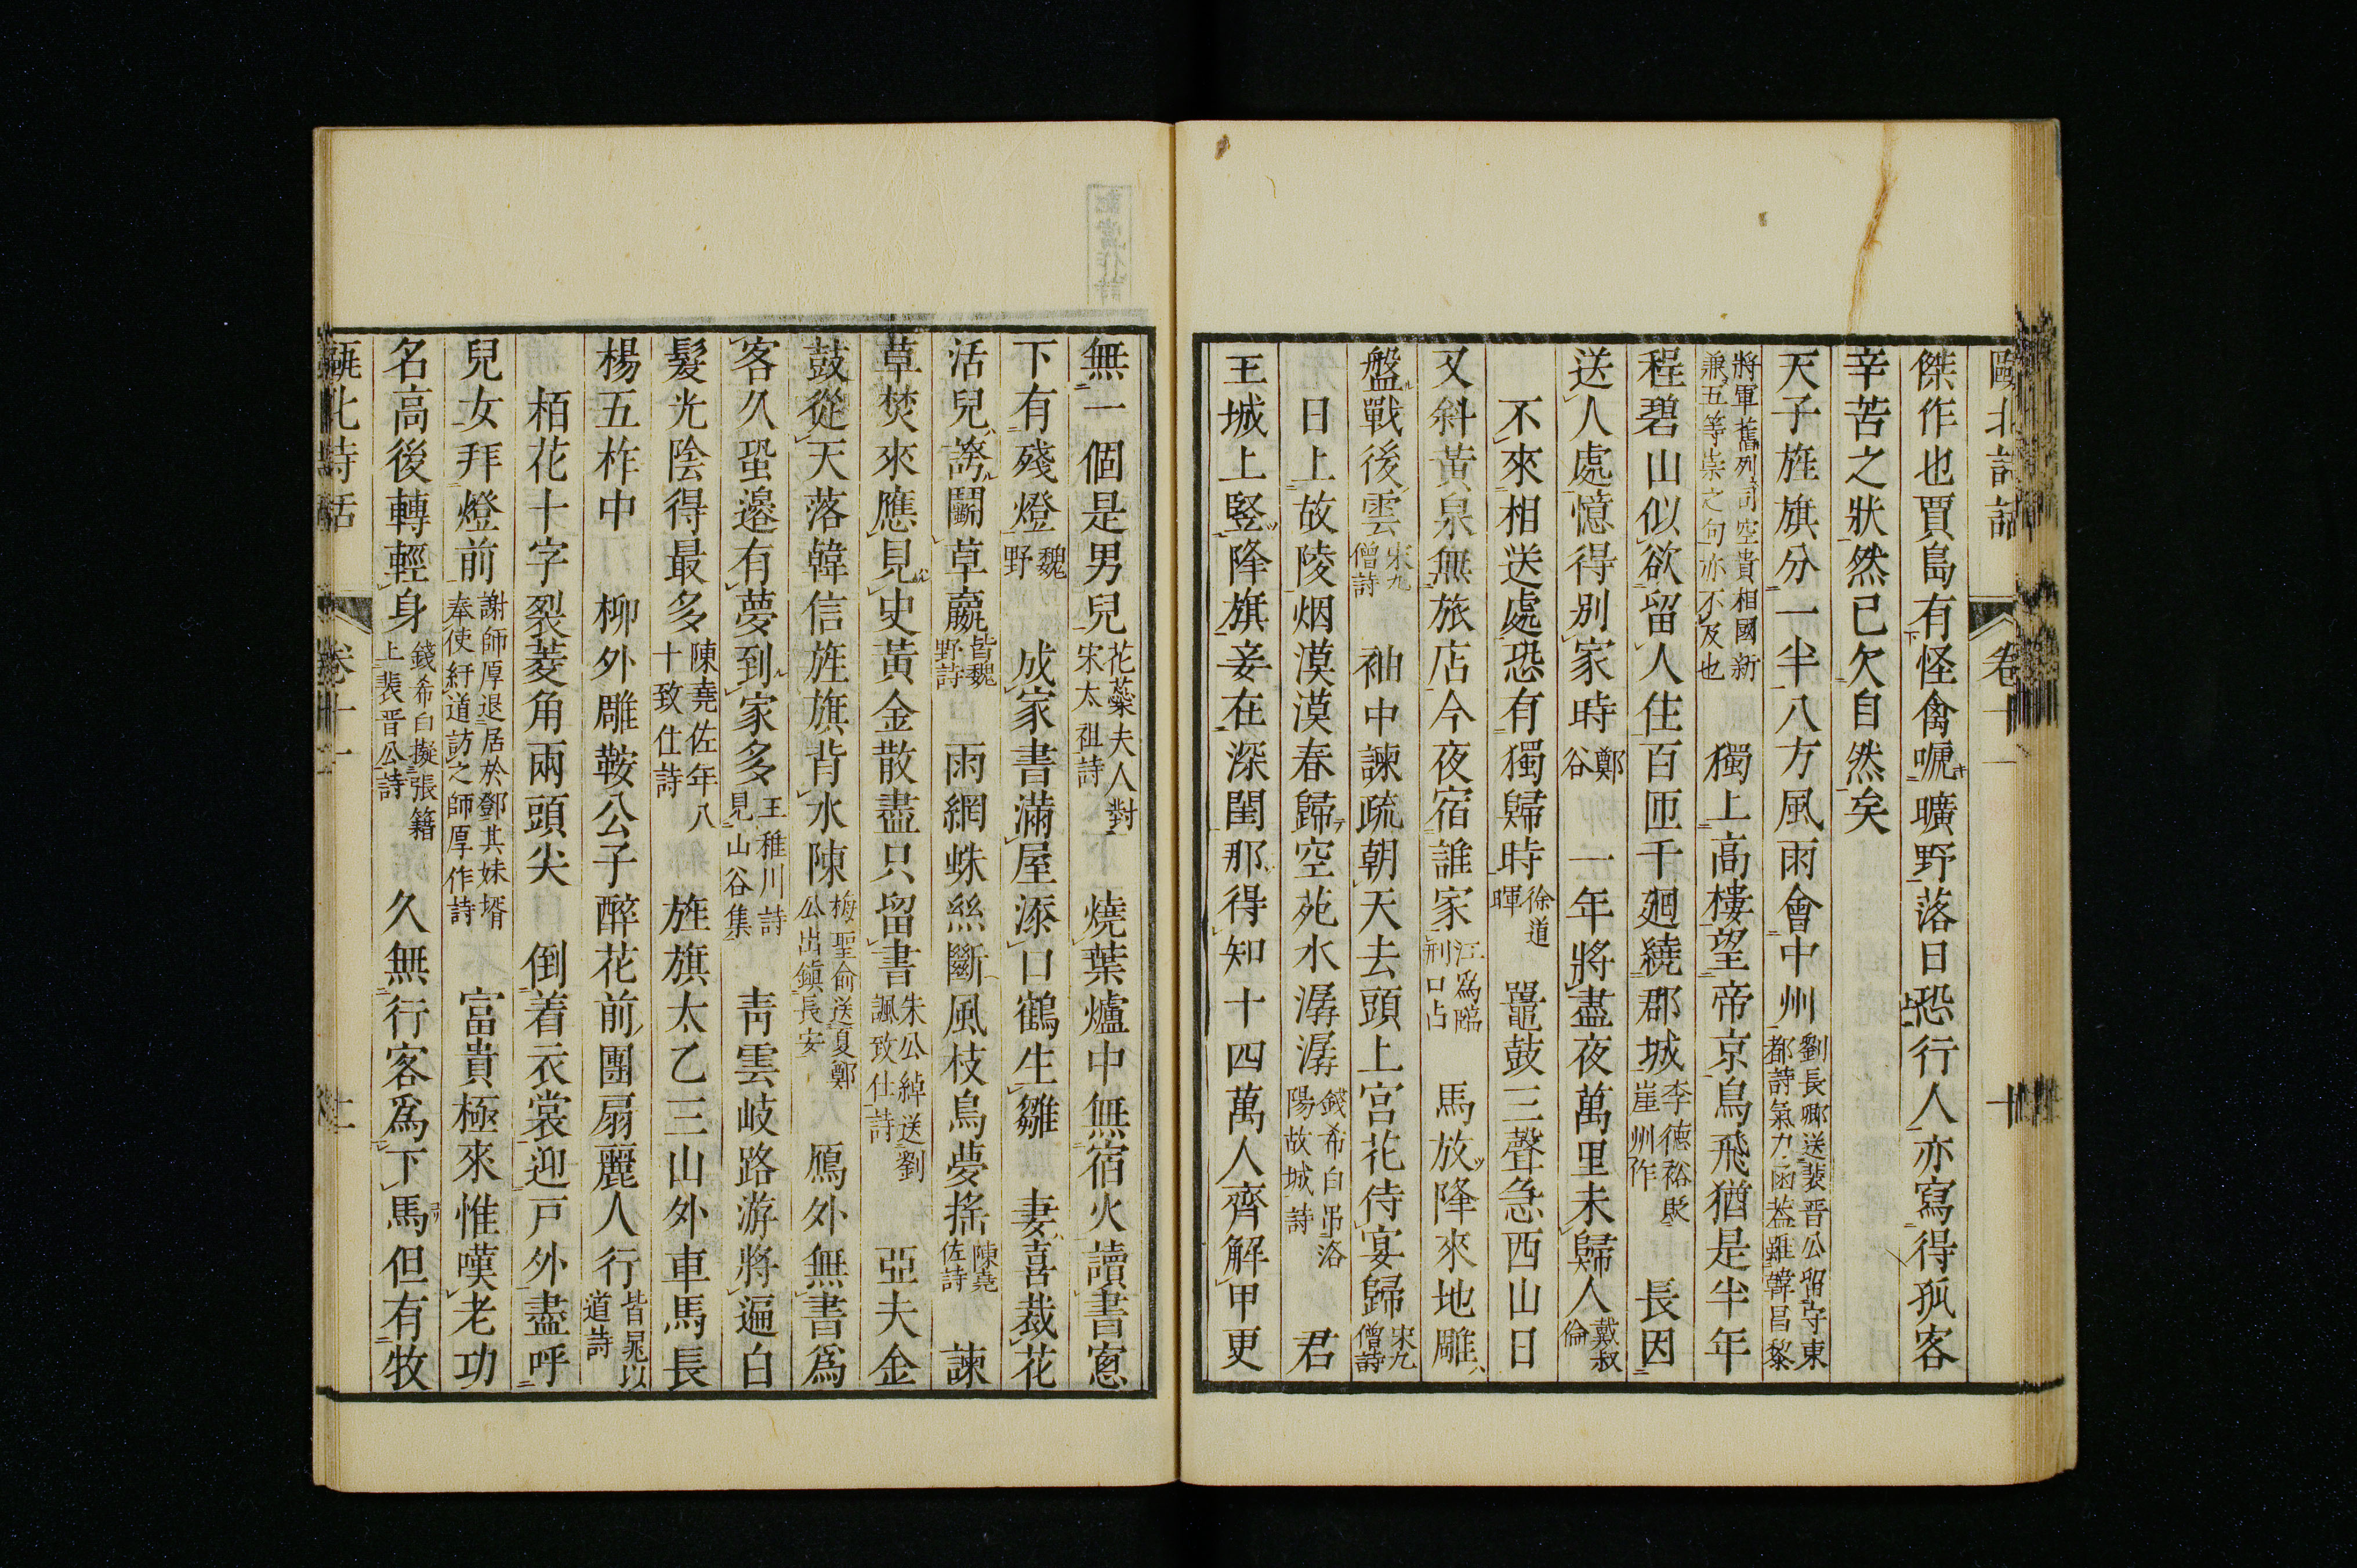 甌北詩話 卷十一 十
傑作也賈島有怪禽嗁曠野落日恐行人亦寫得孤客
辛苦之狀然已欠自然矣
天子旌旗分一半八方風雨會中州劉長卿送裴晉公留守東都詩氣力函蓋雖韓昌黎
將軍舊列司空貴相國新兼五等崇之句亦不及也 獨上高樓望帝京鳥飛猶是半年
程碧山似欲留人住百匝千廻繞郡城李德裕貶崖州作 長因
送人處憶得別家時鄭谷 一年將盡夜萬里未歸人戴叔倫
不來相送處恐有獨歸時徐道暉 鼉鼓三聲急西山日
又斜黃泉無旅店今夜宿誰家江爲臨刑口占 馬放降來地雕
盤戰後雲宋九僧詩 袖中諫疏朝天去頭上宮花侍宴歸宋九僧詩
日上故陵烟漠漠春歸空苑水潺潺錢希白弔洛陽故城詩 君
王城上竪降旗妾在深閨那得知十四萬人齊解甲更
無一個是男兒花蘂夫人對宋太祖詩 燒葉爐中無宿火讀書窻
下有殘燈魏野 成家書滿屋添口鶴生雛 妻喜栽花
活兒誇鬭草贏皆魏野詩 雨網蛛絲斷風枝鳥夢搖陳堯佐詩 諫
草焚來應見史黃金散盡只留書朱公綽送劉諷致仕詩 亞夫金
鼓從天落韓信旌旗背水陳梅聖俞送夏鄭公出鎭長安 鴈外無書爲
客久蛩邊有夢到家多王稚川詩見山谷集 靑雲岐路游將遍白
髮光陰得最多陳堯佐年八十致仕詩 旌旗太乙三山外車馬長
楊五柞中 柳外雕鞍公子醉花前團扇麗人行皆晁以道詩
栢花十字裂菱角兩頭尖 倒着衣裳迎戸外盡呼
兒女拜燈前謝師厚退居於鄧其妹壻奉使紆道訪之師厚作詩 富貴極來惟嘆老功
名高後轉輕身錢希白擬張籍上裴晉公詩 久無行客爲下馬但有牧
甌北詩話 卷十一 十一